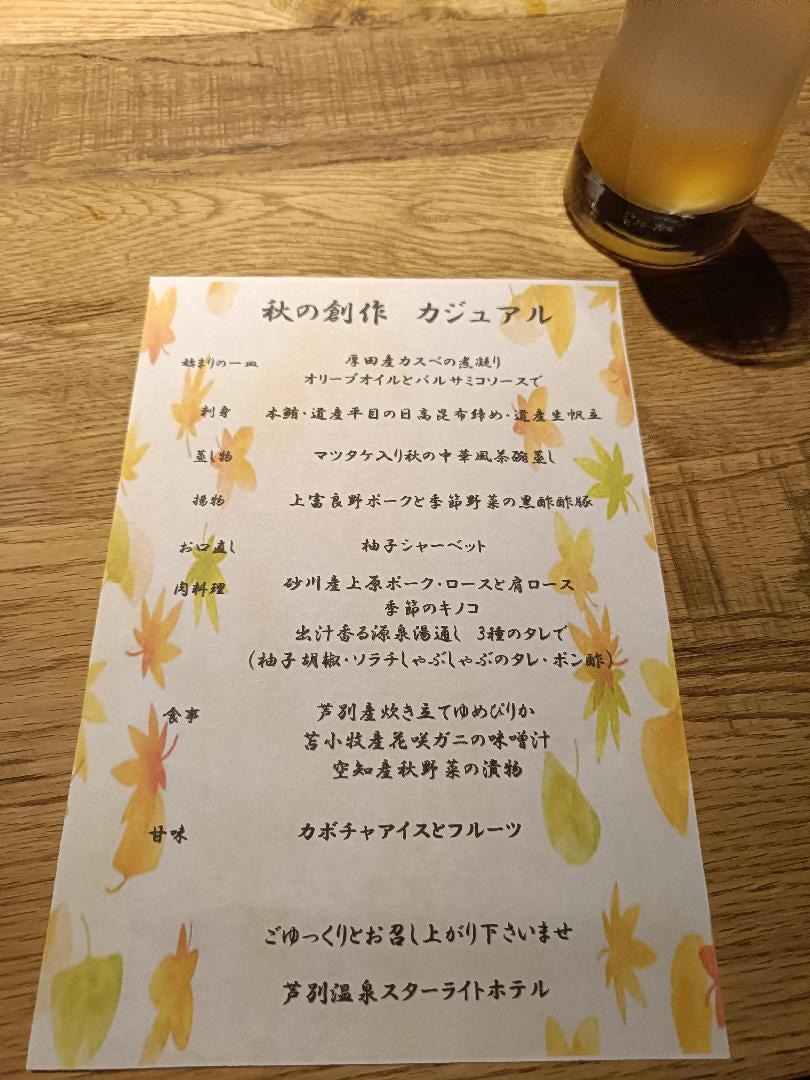 秋の創作　カジュアル
始まりの一皿　厚田産カスベの煮凝り
オリーブオイルとバルサミコソースで
刺身　本鮪・道産平目の日高昆布締め・道産生帆立
蒸し物　マツタケ入り秋の中華風茶碗蒸し
揚物　上富良野ポークと季節野菜の黒酢酢豚
お口直し　柚子シャーベット
肉料理　砂川産上原ポーク・ロースと肩ロース
季節のキノコ
出汁香る源泉湯通し　3種のタレで
(柚子胡椒・ソラチしゃぶしゃぶのタレ・ポン酢)
食事　芦別産炊き立てゆめぴりか
苫小牧産花咲ガニの味噌汁
空知産秋野菜の漬物
甘味　カボチャアイスとフルーツ
ごゆっくりとお召し上がり下さいませ
芦別温泉スターライトホテル